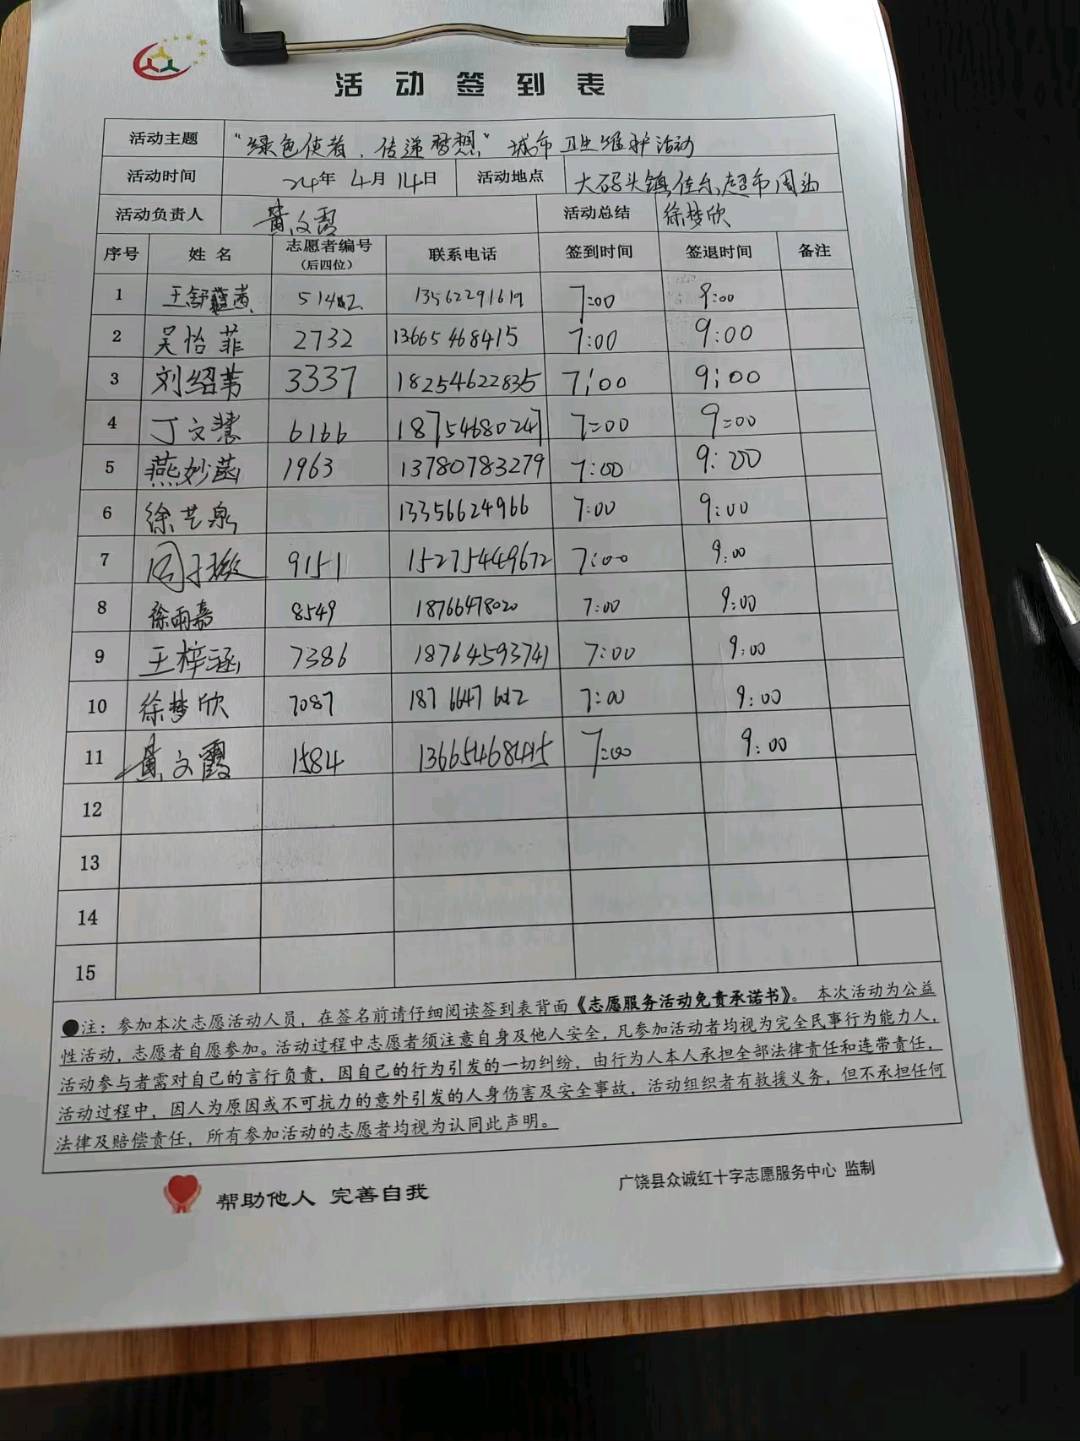 活动签到表
活动主题 “绿色使者，传递梦想” 城市卫生维护活动
活动时间 24年4月14日 活动地点 大码头镇佳乐超市周边
活动负责人 黄文霞 活动总结 徐梦欣
序号 姓名 志愿者编号（后四位） 联系电话 签到时间 签退时间 备注
1 王舒 13562291619 7:00 9:00
2 吴怡菲 2732 13665468415 7:00 9:00
3 刘绍苇 3337 18254622835 7:00 9:00
4 丁文慧 6166 18754680247 7:00 9:00
5 燕妙菡 1963 13780783279 7:00 9:00
6 徐艺泉 13356624966 7:00 9:00
7 周子 9151 15275449672 7:00 9:00
8 徐雨嘉 8549 18766478020 7:00 9:00
9 王梓涵 7386 18764593741 7:00 9:00
10 徐梦欣 7087 7:00 9:00
11 黄文霞 1584 13665468415 7:00 9:00
12
13
14
15
●注：参加本次志愿活动人员，在签名前请仔细阅读签到表背面《志愿服务活动免责承诺书》。本次活动为公益
性活动，志愿者自愿参加。活动过程中志愿者须注意自身及他人安全，凡参加活动者均视为完全民事行为能力人，
活动参与者需对自己的言行负责，因自己的行为引发的一切纠纷，由行为人本人承担全部法律责任和连带责任，
活动过程中，因人为原因或不可抗力的意外引发的人身伤害及安全事故，活动组织者有救援义务，但不承担任何
法律及赔偿责任，所有参加活动的志愿者均视为认同此声明。
帮助他人 完善自我 广饶县众诚红十字志愿服务中心 监制